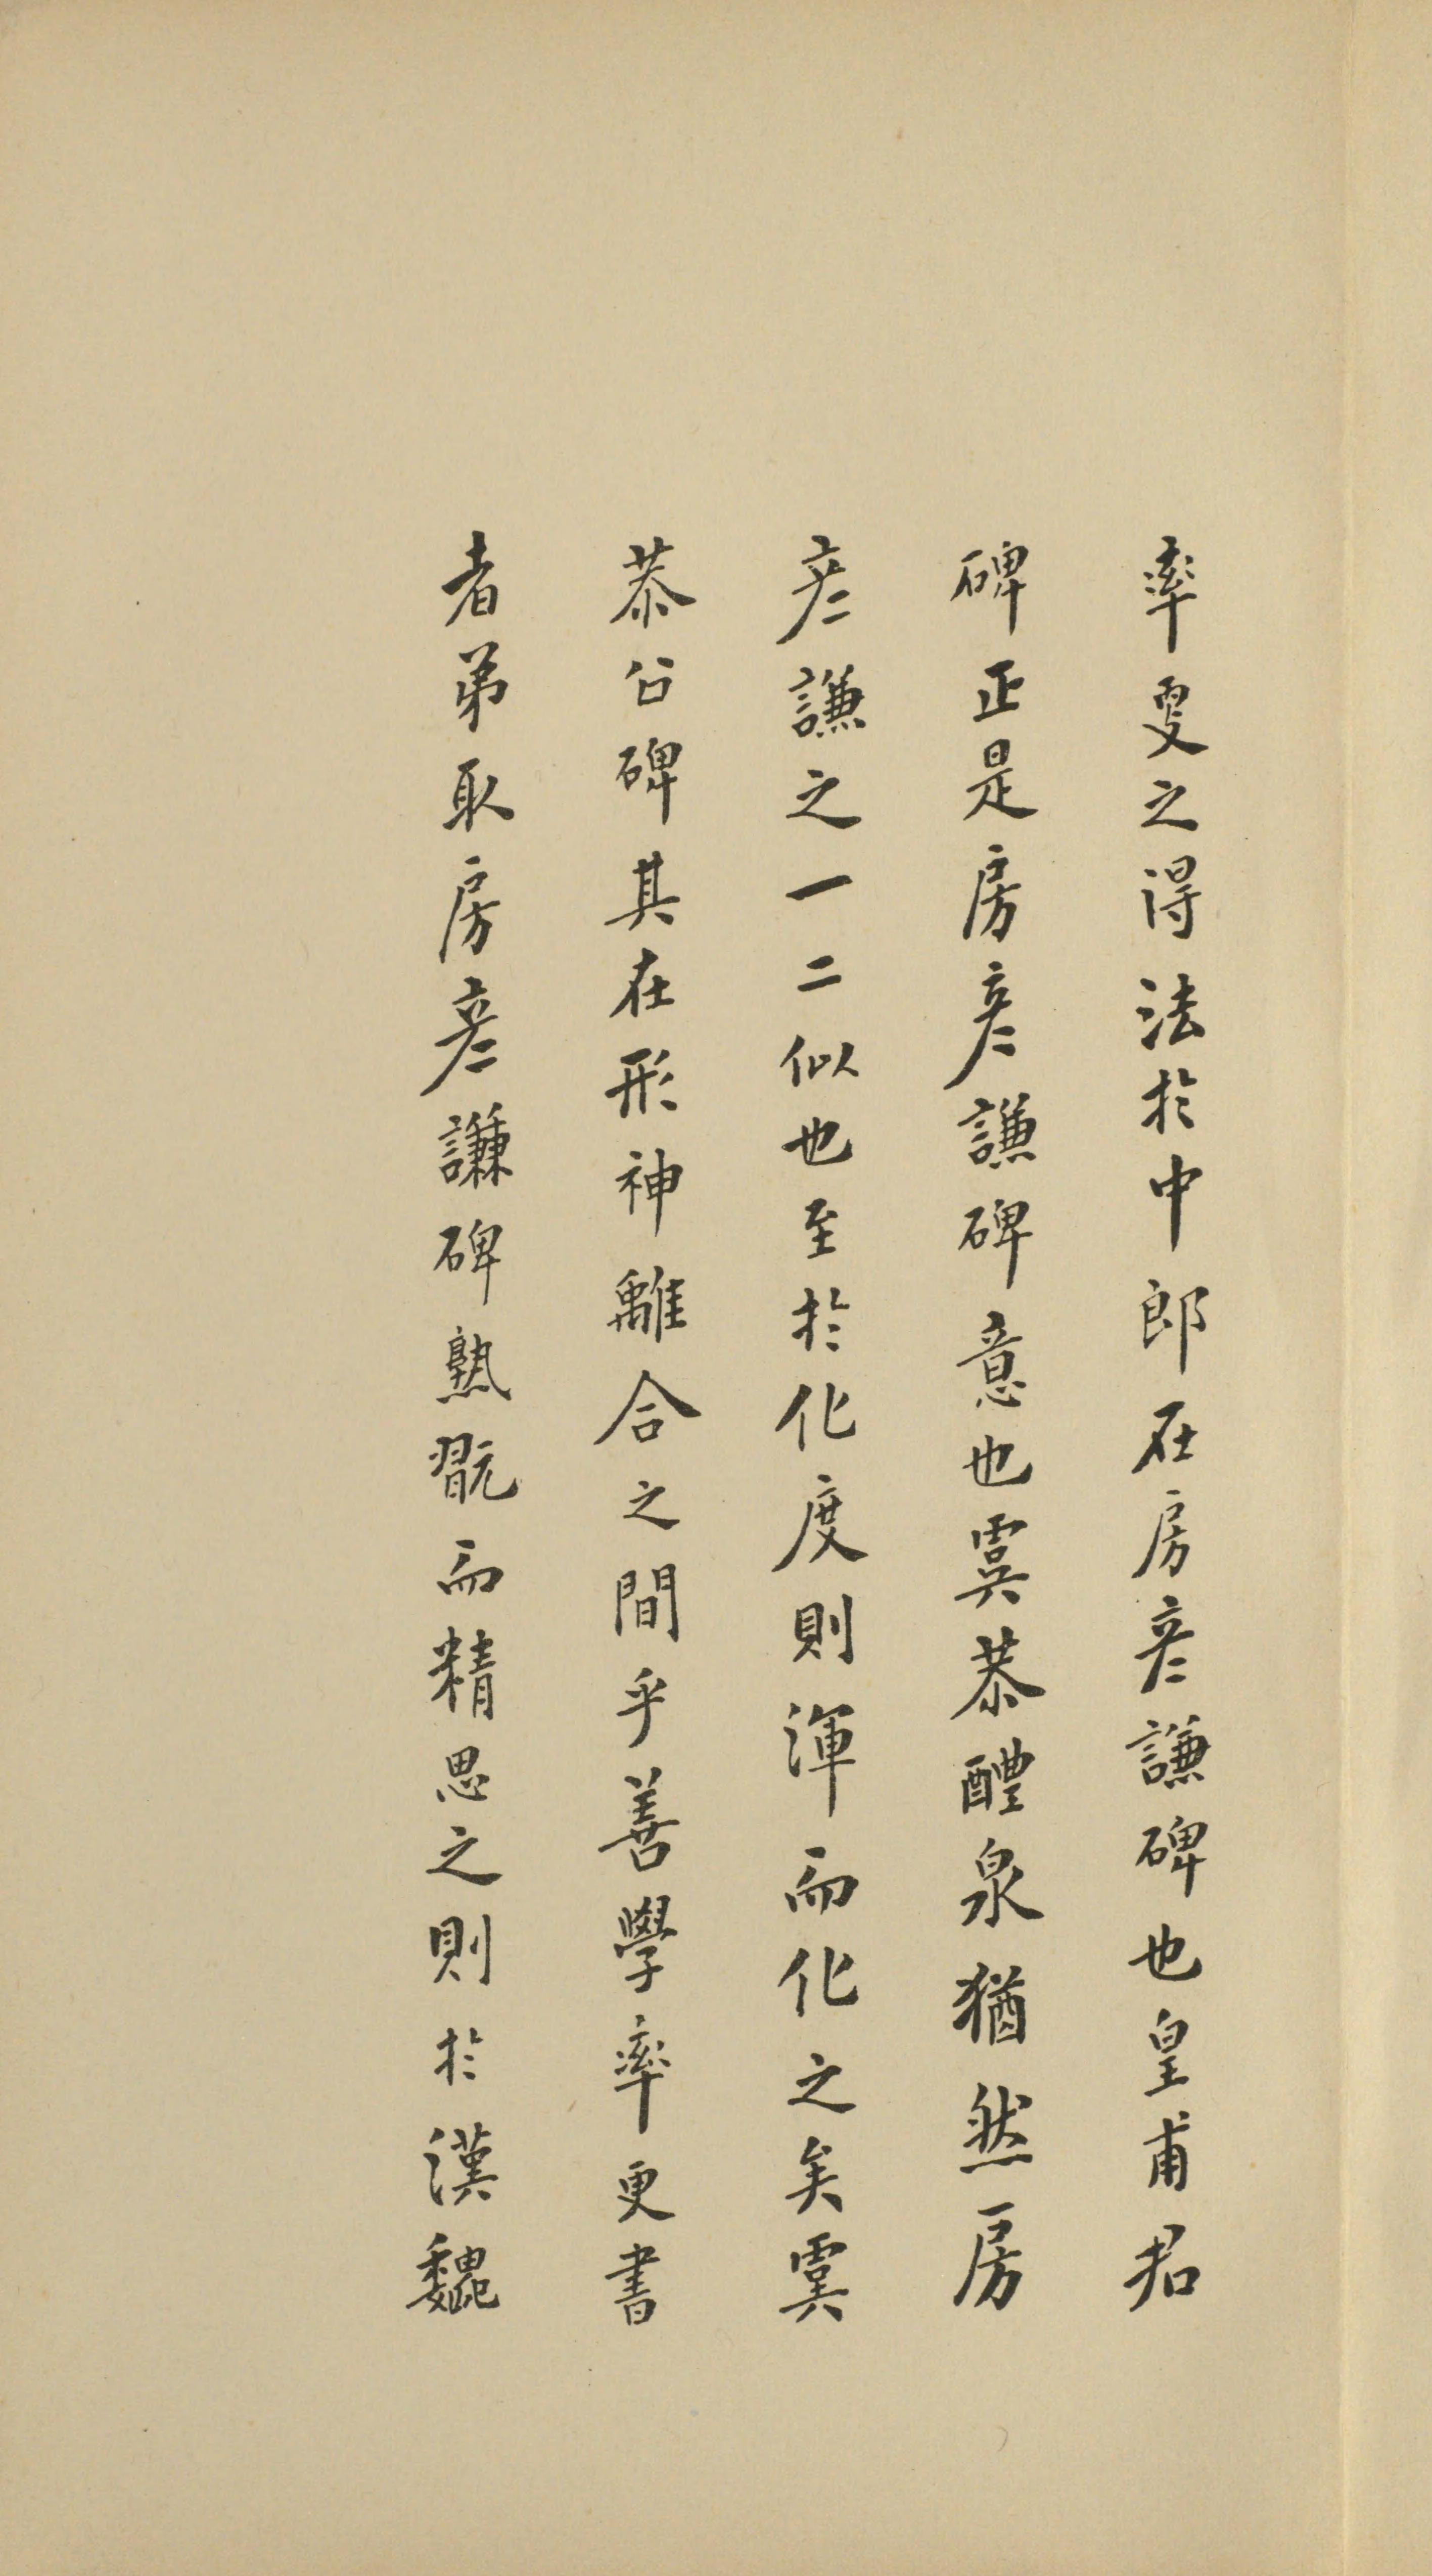 率更之得法於中郎在房彦謙碑也皇甫君
碑正是房彦謙碑意也虞恭醴泉猶然房
彦謙之一二似也至於化度則渾而化之矣虞
恭公碑其在形神離合之間乎善學率更書
者弟取房彦謙碑熟翫而精思之則於漢魏